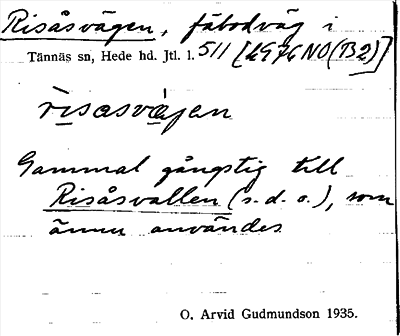 Risåsvägen, fäbodväg i
Tännäs sn, Hede hd. Jtl. l. 511 [1976 NO(B2)]
risåsvägen
Gammal gångstig till
Risåsvallen (s. d. o.), som
ännu användes
O. Arvid Gudmundson 1935.